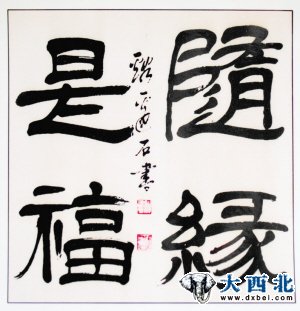 隨緣
是福
石書
大西北
www.dxbei.com